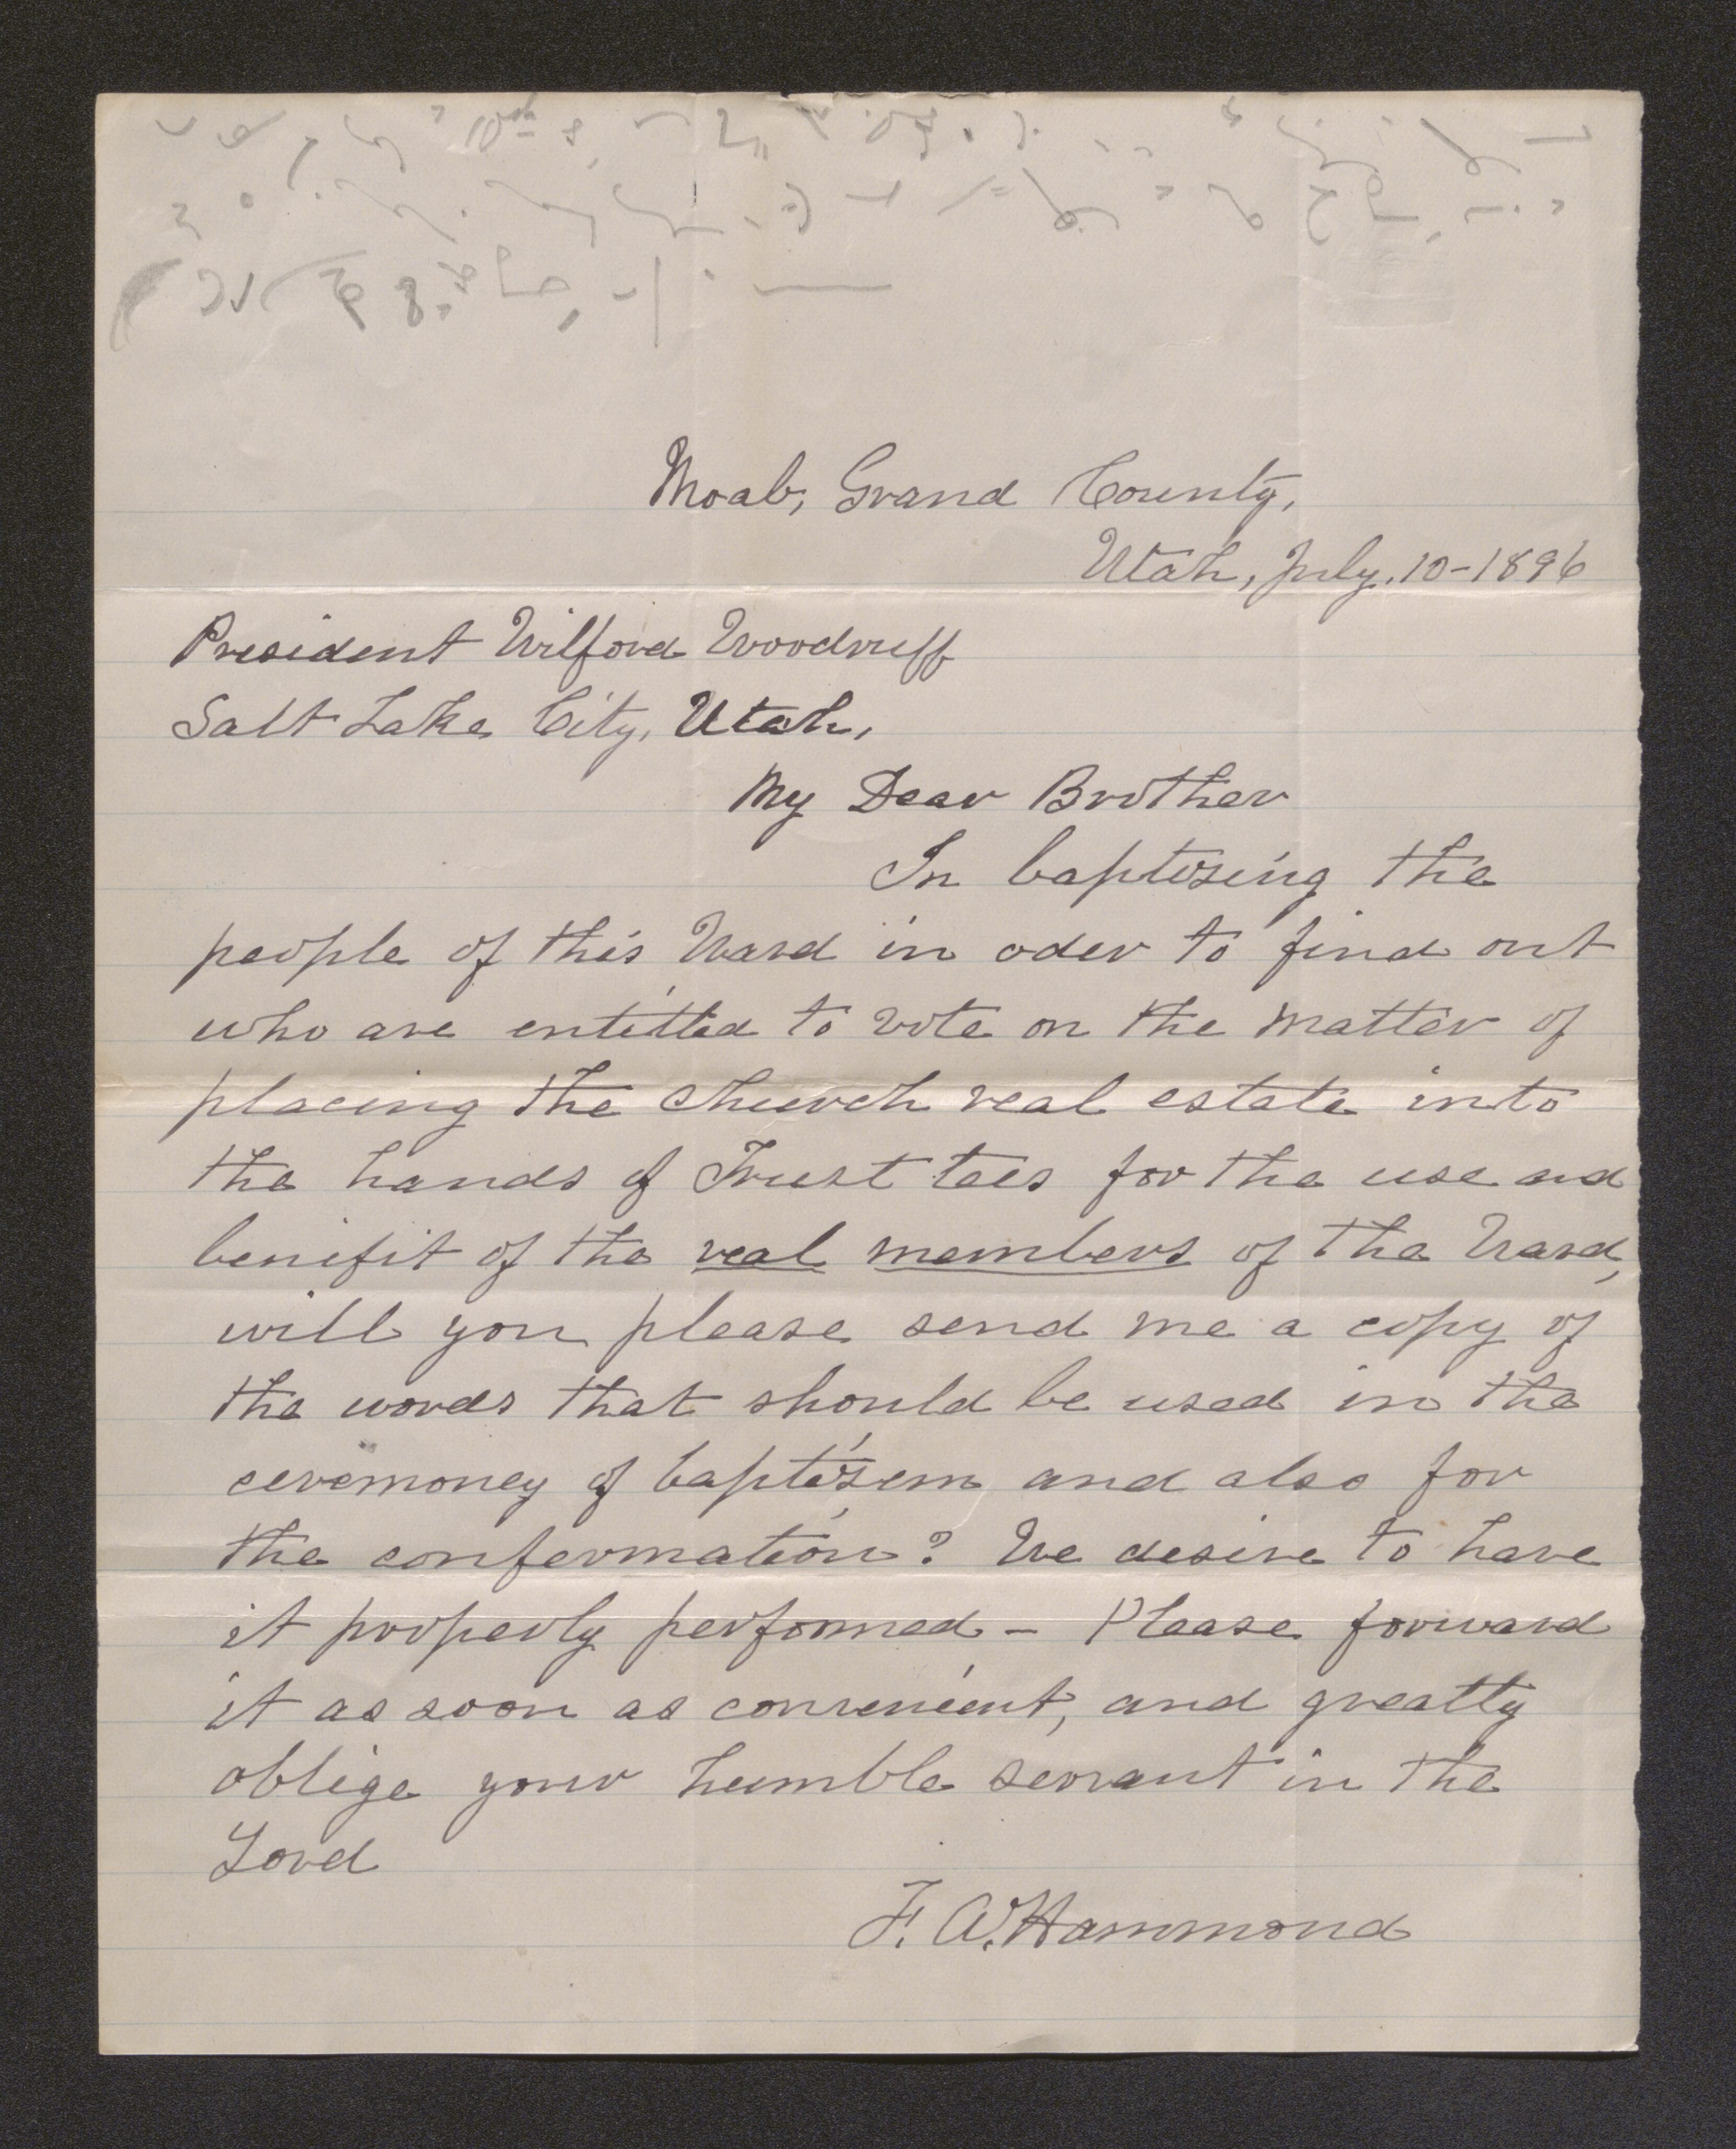 10th
Moab, Grand County,
Utah, July. 10-1896
President Wilford Woodruff
Salt Lake City, Utah,
My Dear Brother
In baptising the
people of this Ward in oder to find out
who are entitled to vote on the matter of
placing the church real estate into
the hands of Trust tees for the use and
benifit of the real members of the Ward,
will you please send me a copy of
the words that should be used in the
ceremoney of baptisem and also for
the confermation? We desire to have
it properly performed - Please forward
it as soon as convenient, and greatly
oblige your humble servant in the
Lord
F. A. Hammond